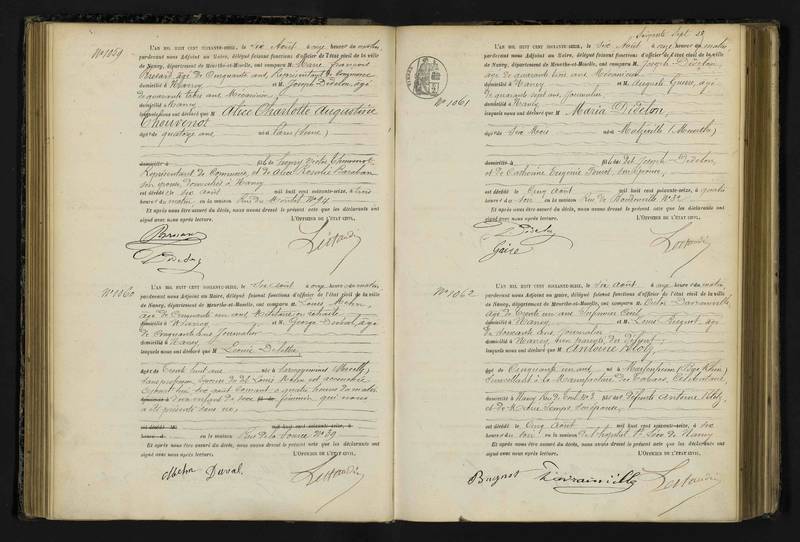 N° 1059
L'AN MIL HUIT CENT SOIXANTE-SEIZE, le six Août à onze heures du matin,
pardevant nous Adjoint au Maire, délégué faisant fonctions d'officier de l'état civil de la ville
de Nancy, département de Meurthe-et-Moselle, ont comparu M. Marie François
âgé de Cinquante ans, Représentant de Commerce
domicilié à Nancy et M. Joseph Didelon, âgé
de quarante trois ans Mécanicien
domicilié à Nancy
lesquels nous ont déclaré que M Alice Charlotte Augustine
Chouvenot
âgée de quatorze ans né à Paris (Seine)
domicilié à fille de Henry Victor Chouvenot
Représentant de Commerce, et de Alice Rosalie
son épouse, domiciliés à Nancy
est décédée le six août mil huit cent soixante-seize, à trois
heures du matin en la maison Rue de N° 94
Et après nous être assuré du décès, nous avons dressé le présent acte que les déclarants ont
signé avec nous après lecture. L'OFFICIER DE L'ÉTAT CIVIL,
N° 1060
L'AN MIL HUIT CENT SOIXANTE-SEIZE, le six août à onze heures du matin,
pardevant nous Adjoint au Maire, délégué faisant fonctions d'officier de l'état civil de la ville
de Nancy, département de Meurthe-et-Moselle, ont comparu M. Louis
âgé de Cinquante un ans, Militaire en retraite
domicilié à Nancy et M. George Duval, âgé
de Cinquante ans Journalier
domicilié à Nancy
lesquels nous ont déclaré que M Léonie
âgée de Trente huit ans née à
Sans profession, épouse du dit Louis est accouchée
aujourd'hui six août courant à quatre heures du matin
d'un enfant du sexe féminin qui nous
a été présenté sans vie,
est décédé mil huit cent soixante-seize, à
heures d en la maison Rue de la Source N° 39
Et après nous être assuré du décès, nous avons dressé le présent acte que les déclarants ont
signé avec nous après lecture. L'OFFICIER DE L'ÉTAT CIVIL,
Duval
Soixante Sept
N° 1061
L'AN MIL HUIT CENT SOIXANTE-SEIZE, le six Août à onze heures du matin,
pardevant nous Adjoint au Maire, délégué faisant fonctions d'officier de l'état civil de la ville
de Nancy, département de Meurthe-et-Moselle, ont comparu M. Joseph Didelon,
âgé de quarante trois ans Mécanicien
domicilié à Nancy et M. Auguste âgé
de quarante sept ans, Journalier
domicilié à Nancy
lesquels nous ont déclaré que M Maria Didelon,
âgée de Six Mois née à Malzéville (Meurthe)
domicilié à fille du dit Joseph Didelon,
et de Catherine Eugénie son épouse,
est décédée le Cinq Août mil huit cent soixante-seize, à quatre
heures du soir en la maison Rue de Boudonville N° 32
Et après nous être assuré du décès, nous avons dressé le présent acte que les déclarants ont
signé avec nous après lecture. L'OFFICIER DE L'ÉTAT CIVIL,
N° 1062
L'AN MIL HUIT CENT SOIXANTE-SEIZE, le six août à onze heures du matin,
pardevant nous Adjoint au Maire, délégué faisant fonctions d'officier de l'état civil de la ville
de Nancy, département de Meurthe-et-Moselle, ont comparu M. Victor
âgé de Trente un ans Infirmier Civil
domicilié à Nancy, et M. Louis Bugnot âgé
de Cinquante ans Journalier
domicilié à Nancy, non parents du défunt;
lesquels nous ont déclaré que M Antoine
âgé de Cinquante un ans né à
Surveillant à la Manufacture des Tabacs, Célibataire
domicilié à Nancy Rue N° 3 fils des défunts Antoine
et de son épouse
est décédé le Cinq Août mil huit cent soixante-seize, à six
heures du soir en la maison de l'hôpital St Léon de Nancy
Et après nous être assuré du décès, nous avons dressé le présent acte que les déclarants ont
signé avec nous après lecture. L'OFFICIER DE L'ÉTAT CIVIL,
Bugnot